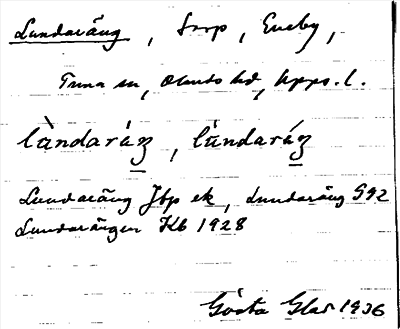 Lundaräng, torp, Eneby,
Tuna sn, Olands hd, Upps. l.
lùndaráŋ, lùndaráŋ
Lundaräng Jbp ek, Lundaräng G92
Lundarängen Kb 1928
Gösta Glas 1936